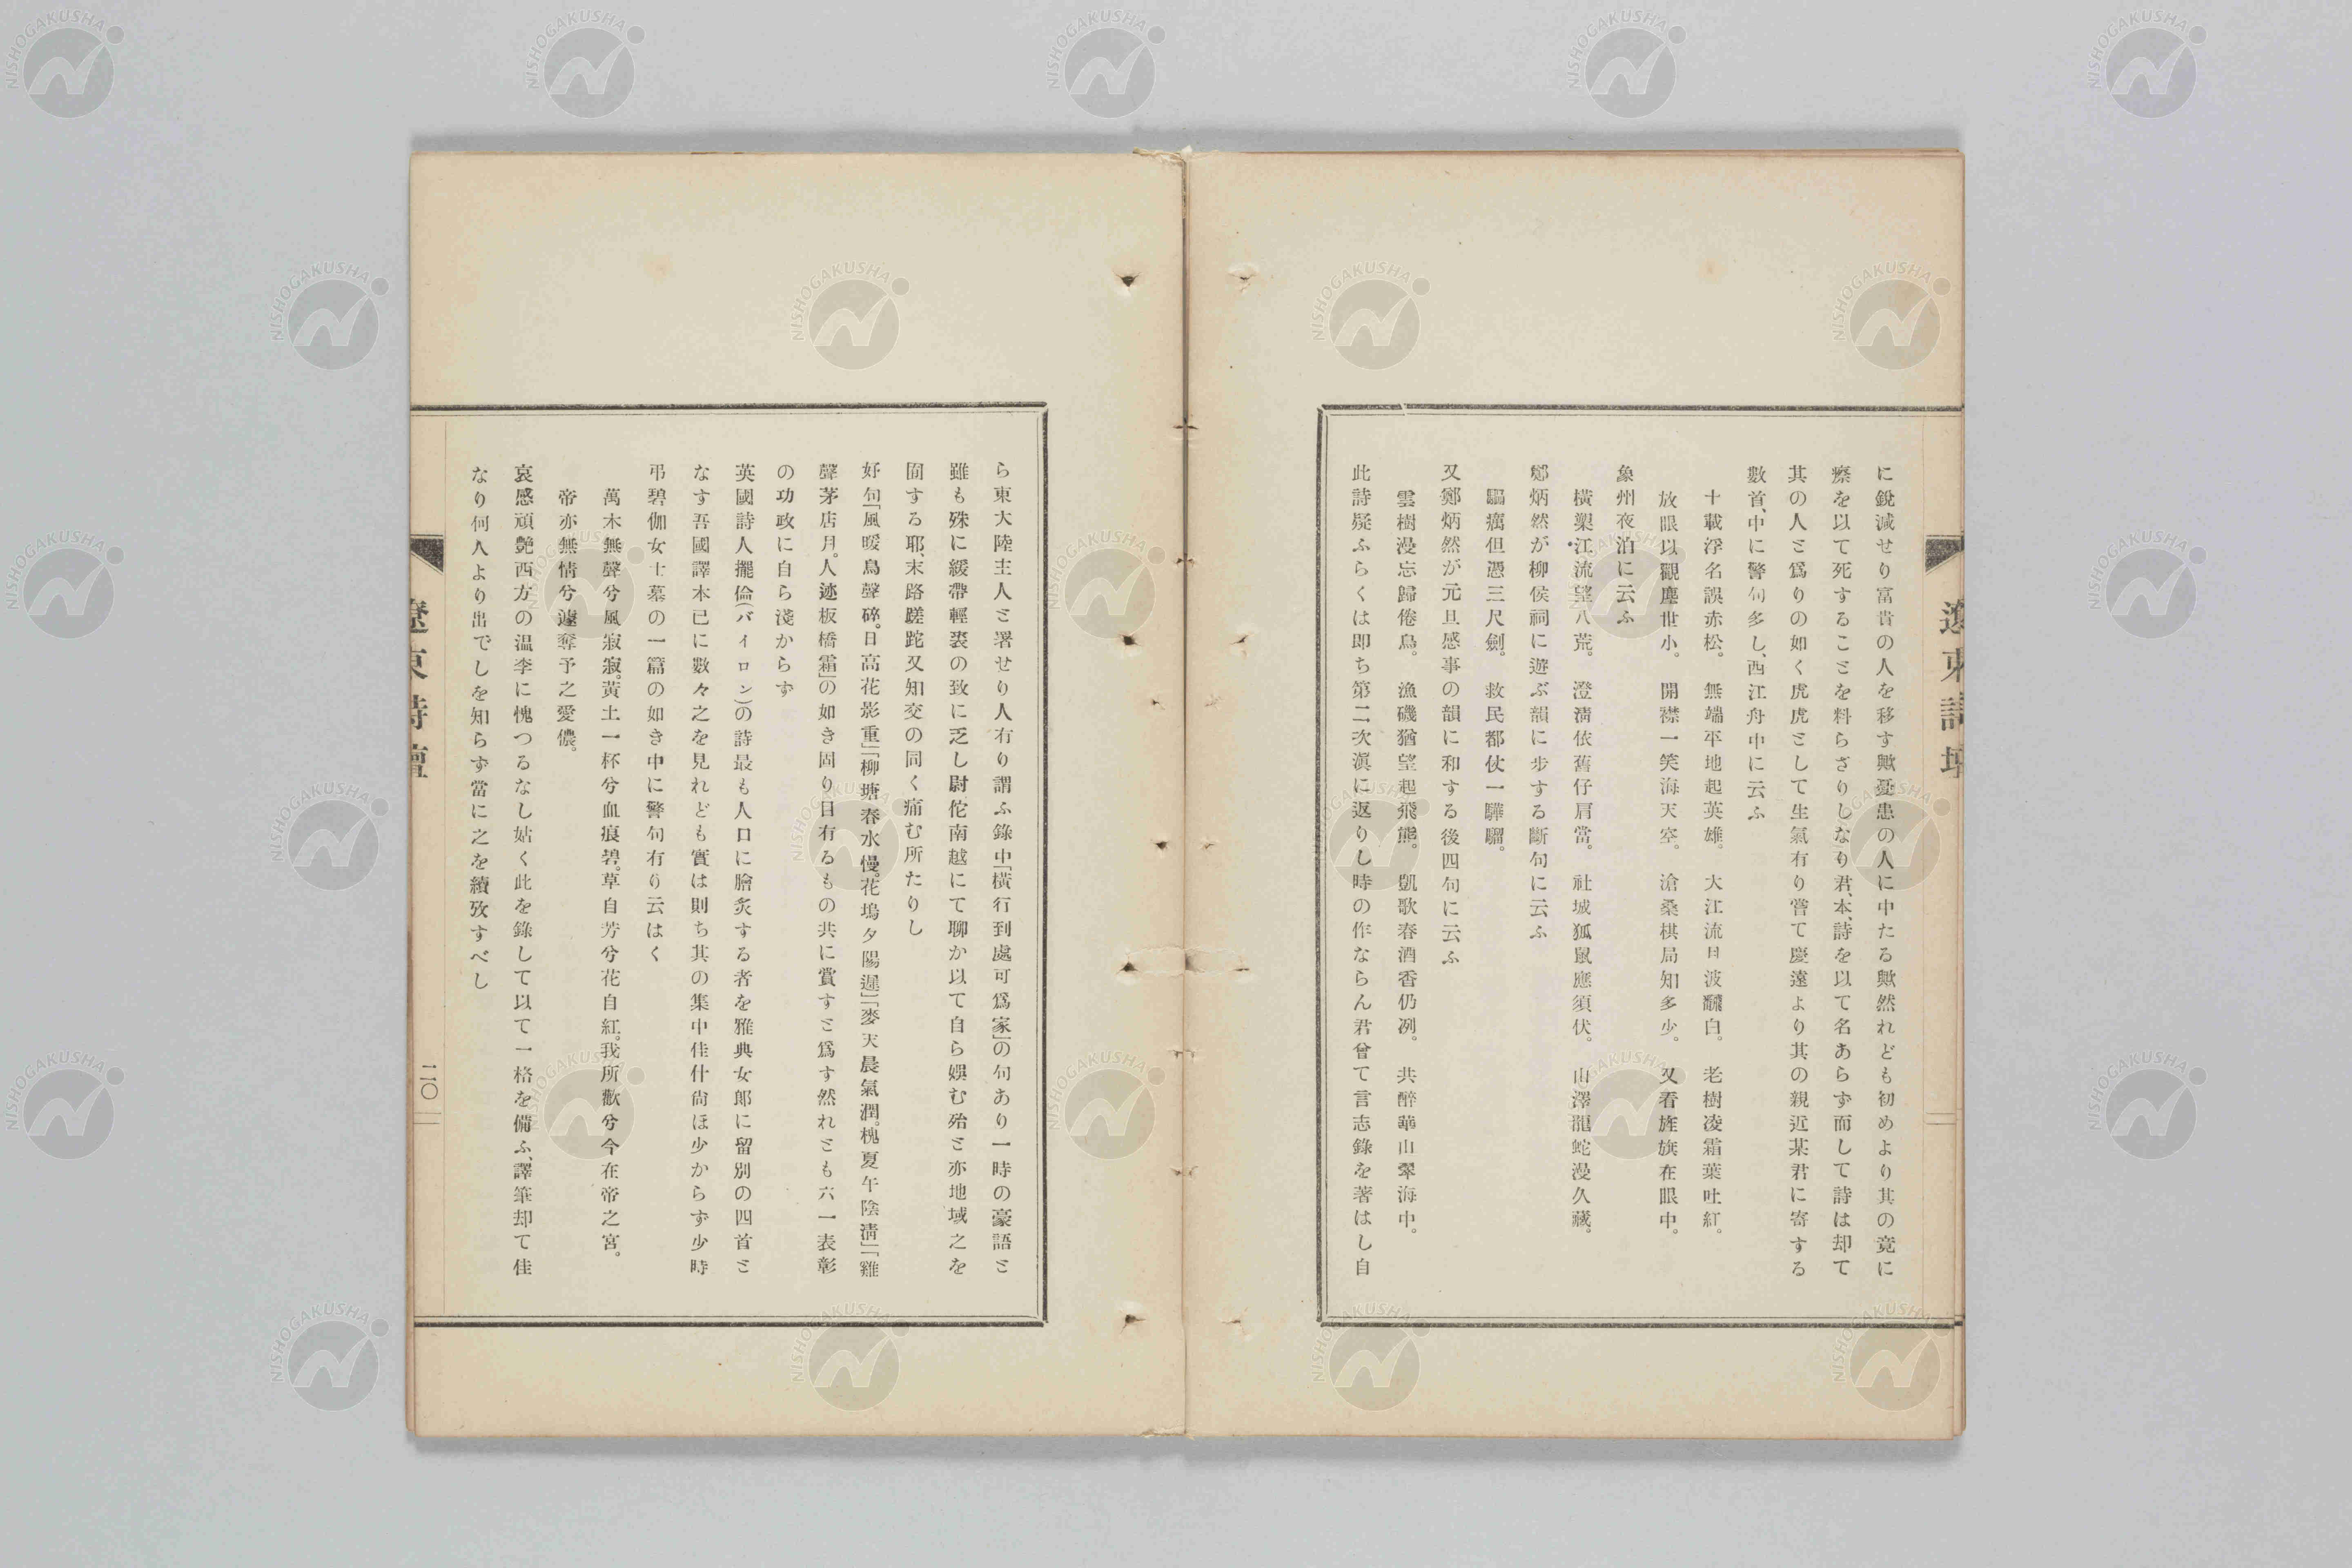 に銳減せり富貴の人を移す歟憂患の人に中たる歟然れども初めより其の竟に
瘵を以て死することを料らざりしなり君、本、詩を以て名あらず而して詩は却て
其の人と爲りの如く虎虎として生氣有り嘗て慶遠より其の親近某君に寄する
數首、中に警句多し、西江舟中に云ふ
十載浮名誤赤松。 無端平地起英雄。 大江流日波飜白。 老樹凌霜葉吐紅。
放眼以觀塵世小。 開襟一笑海天空。 滄桑棋局知多少。 又看旌旗在眼中。
象州夜泊に云ふ
橫槊江流望八荒。 澄淸依舊仔肩當。 社城狐鼠應須伏。 山澤龍蛇漫久藏。
鄭炳然が柳侯祠に遊ぶ韻に步する斷句に云ふ
驅癘但憑三尺劍。 救民都仗一驊騮。
又鄭炳然が元旦感事の韻に和する後四句に云ふ
雲樹漫忘歸倦鳥。 漁磯猶望起飛熊。 凱歌春酒香仍冽。 共醉華山翠海中。
此詩疑ふらくは卽ち第二次滇に返りし時の作ならん君曾て言志錄を著はし自
ら東大陸主人と署せり人有り謂ふ錄中「橫行到處可爲家」の句あり一時の豪語と
雖も殊に緩帶輕裘の致に乏し尉佗南越にて聊か以て自ら娛む殆と亦地域之を
囿する耶、末路蹉跎又知交の同く痛む所たりし
好句「風暖鳥聲碎。日高花影重」「柳塘春水慢。花塢夕陽遲」「麥天晨氣潤。槐夏午陰淸」「雞
聲茅店月。人迹板橋霜」の如き固り日有るもの共に賞すと爲す然れとも六一表彰
の功政に自ら淺からず
英國詩人擺倫(バイロン)の詩最も人口に膾炙する者を雅典女郎に留別の四首と
なす吾國譯本已に數々之を見れども實は則ち其の集中佳什尙ほ少からず少時
弔碧伽女士墓の一篇の如き中に警句有り云はく
萬木無聲兮風寂寂。黃土一杯兮血痕碧。草自芳兮花自紅。我所歡兮今在帝之宮。
帝亦無情兮遽奪予之愛儂。
哀感頑艷西方の溫李に愧つるなし姑く此を錄して以て一格を備ふ、譯筆却て佳
なり何人より出でしを知らず當に之を續攷すべし
遼東詩壇
二〇